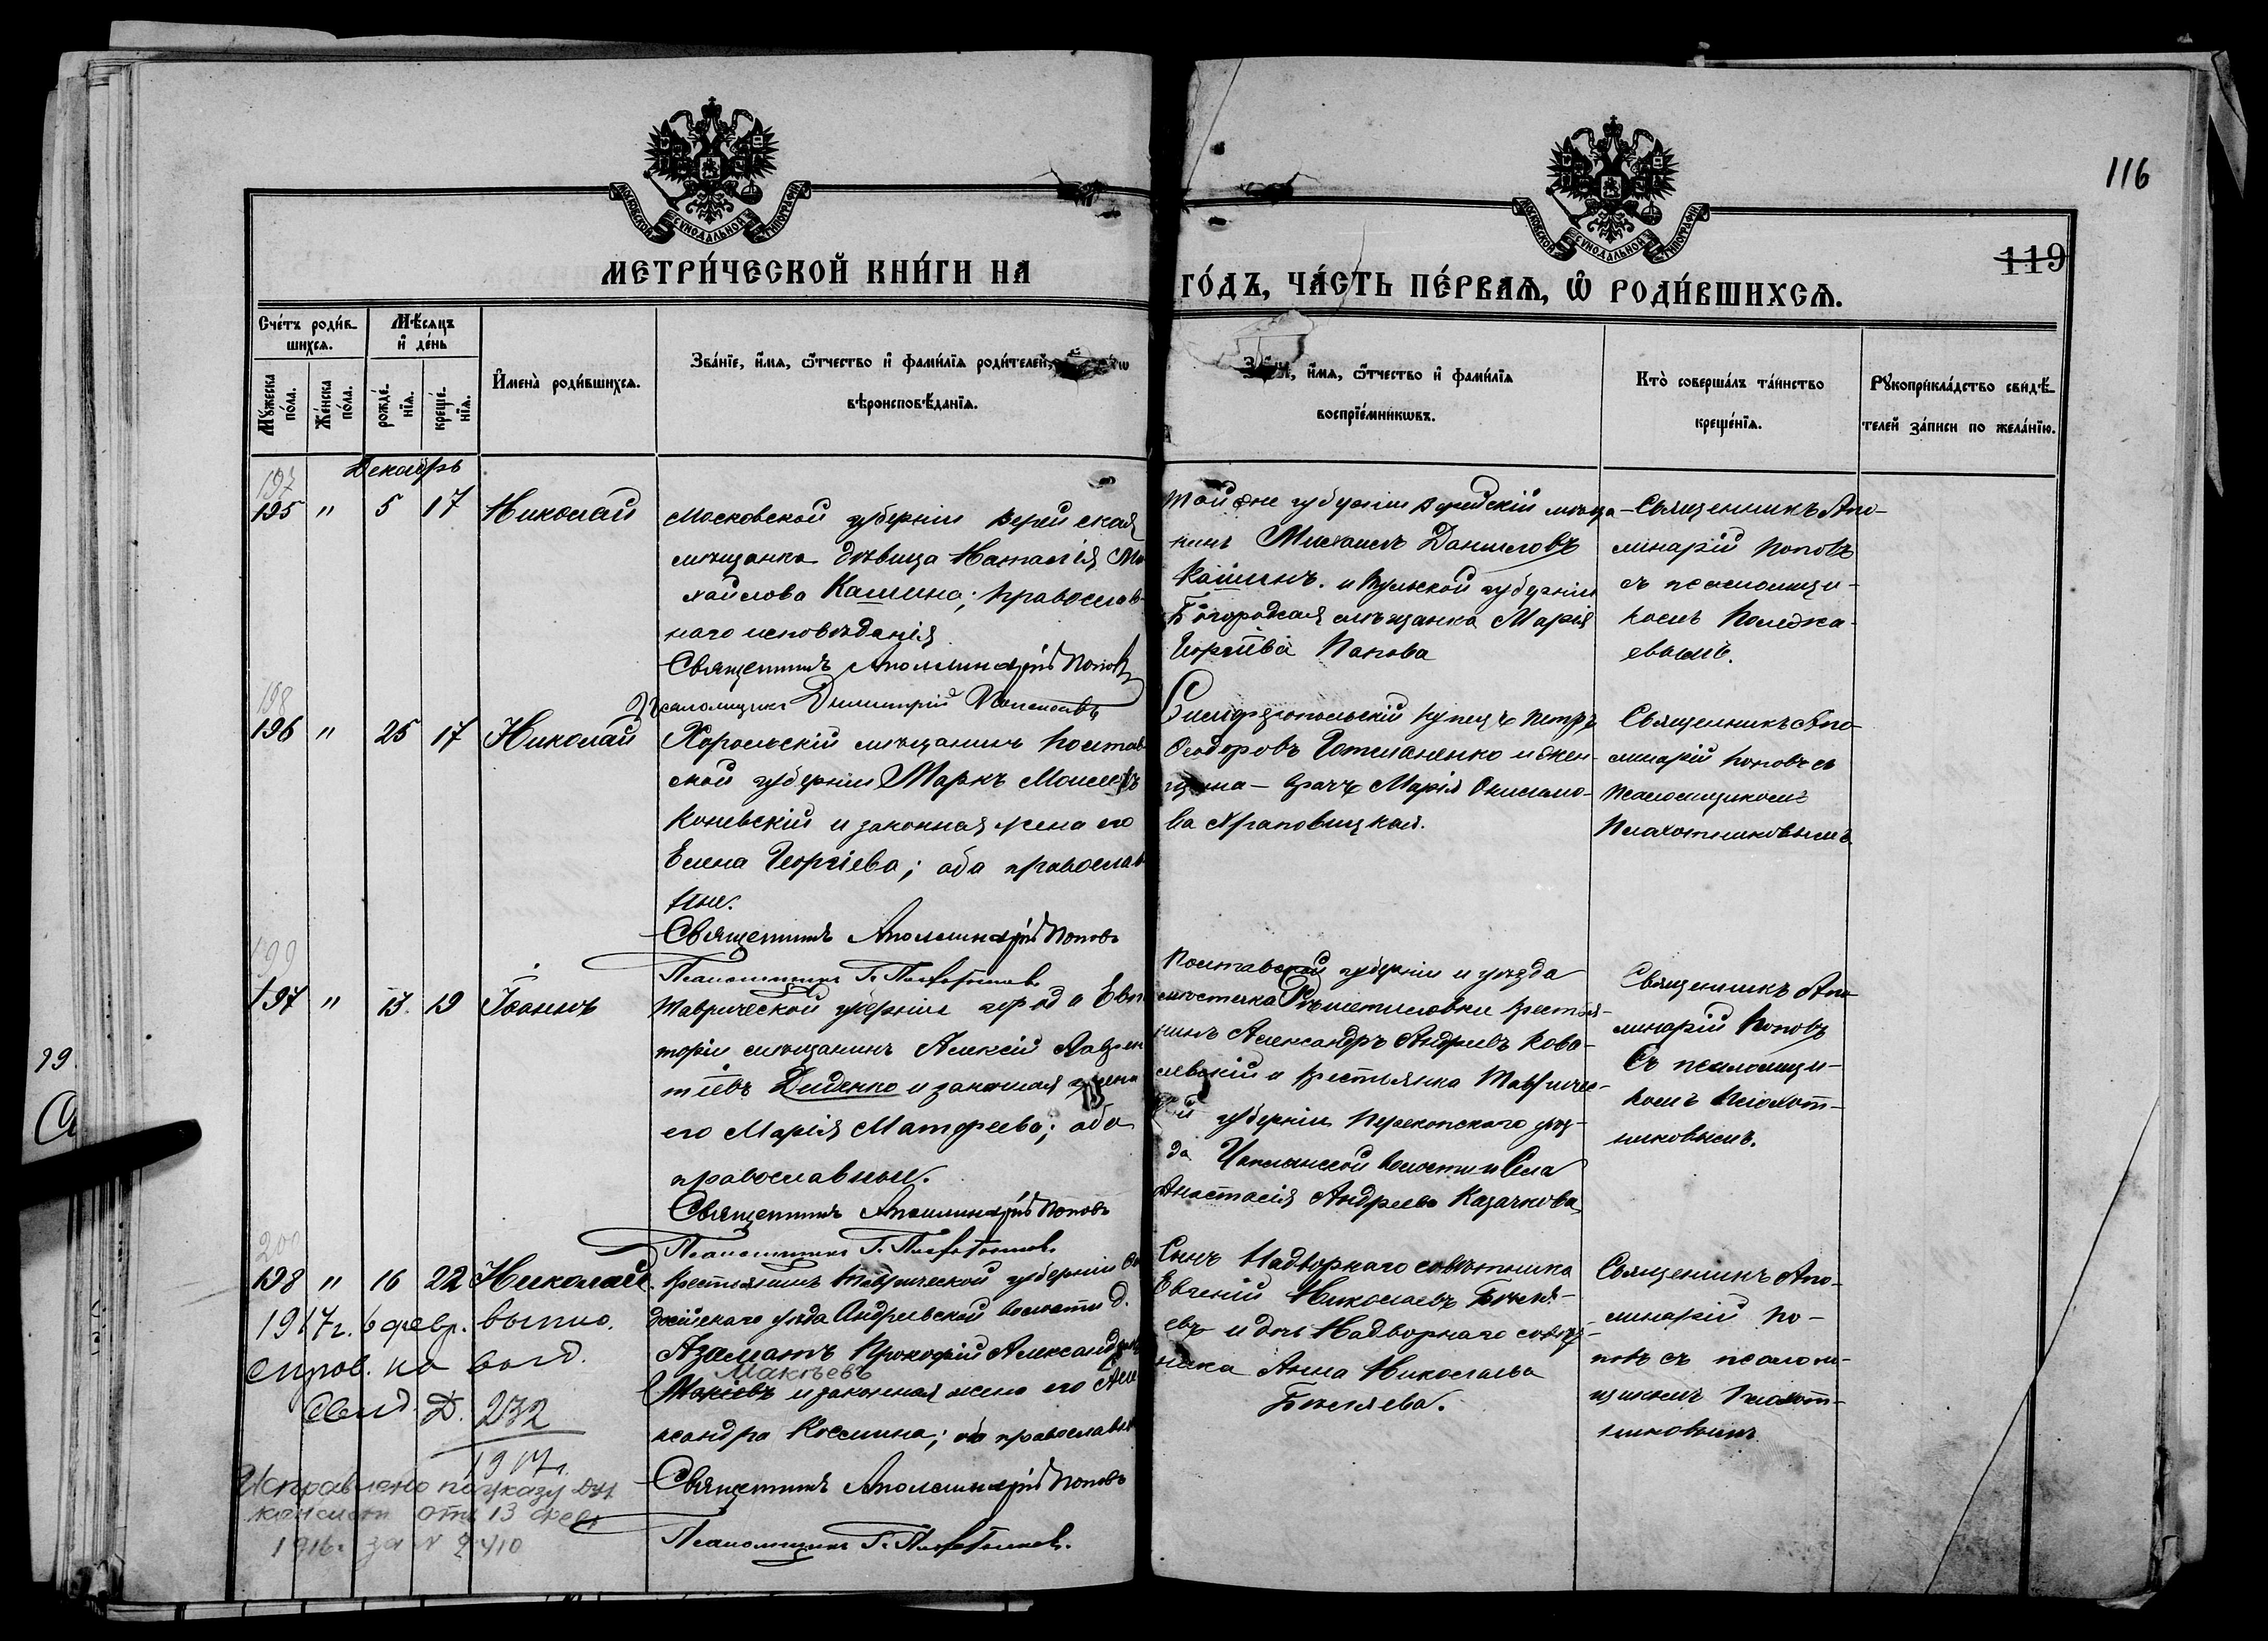 116
119
МОСКОВСКОЙ СѴНОДАЛЬНОЙ ТИПОГРАФІИ
МОСКОВСКОЙ СѴНОДАЛЬНОЙ ТИПОГРАФІИ
МЕТРИ́ЧЕСКОЙ КНИ́ГИ НА
ГО́ДЪ, ЧА́СТЬ ПЕ́РВАѦ, Ѡ РОДИ́ВШИХСѦ.
Сче́тъ роди́в-
шихсѧ.
Мѣ́сяцъ
и де́нь
Мꙋжеска по́ла.
Же́нска по́ла.
рожде́-
нїѧ.
креще́-
нїѧ.
Имена̀ роди́вшихсѧ.
Зва́нїе, и́мѧ, ѻ҆́тчество и фами́лїѧ роди́телей,
вѣроисповѣ́данїѧ.
и́мѧ, ѻ҆́тчество и фами́лїѧ
воспрїе́мникѡвъ.
Кто̀ соверша́лъ та́инство
креще́нїѧ.
Рꙋкоприкла́дство свидѣ́-
телей за́писи по жела́нїю.
Декабрь
197
195 " 5 17 Николай
Московской губерніи Верейская
мѣщанка дѣвица Наталія Ми
хайлова Кашина; православ-
наго исповѣданія
Священникъ Аполлинарій Поповъ
Псаломщикъ Димитрій
Той же губерніи Верейскій мѣща-
нинъ Михаилъ Даниловъ
Кашинъ. и Тульской губерніи
Богородская мѣщанка Марія
Георгіева Попова
Священникъ Апо-
линарій Поповъ
съ псаломщи-
комъ
198
196 " 25 17 Николай
Хорольскій мѣщанинъ Полтав
ской губерніи Маркъ Моисеевъ
Коневскій и законная жена его
Елена Георгіева; оба православ
ные.
Священникъ Аполлинарій Поповъ
Псаломщикъ Г. Плахотниковъ
Симферопольскій купецъ Петръ
Ѳеодоровъ Готманенко и жен-
щина - врачъ Марія Онисимо-
ва Храповицкая.
Священникъ Апо-
линарій Поповъ съ
псаломщикомъ
Плахотниковымъ
199
197 " 13. 19 Іоаннъ
Таврической губерніи города Евпа
торіи мѣщанинъ Алексій Лаврен
тіевъ Диденко и законная жена
его Марія Матфеева; оба
православные.
Священникъ Аполлинарій Поповъ
Псаломщикъ Г. Плахотниковъ
Полтавской губерніи и уѣзда
мѣстечка Рѣшетиловки крестья-
нинъ Александръ Андреевъ Кова-
левскій и крестьянка Тавричес-
кой губерніи Перекопскаго уѣз-
да Чаплинской волости и села
Анастасія Андреева Казачкова
Священникъ Апо-
линарій Поповъ
Съ псаломщи-
комъ Плахот-
никовымъ.
200
198 " 16 22 Николай.
Крестьянинъ Таврической губерніи Ѳео
досійскаго уѣзда Андреевской волости д.
Азаматъ Прокофій Александровъ
Макѣевъ
Мокіевъ и законная жена его Але
ксандра Космина; оба православные
Священникъ Аполлинарій Поповъ
Псаломщикъ Г. Плахотниковъ.
Сынъ Надворнаго совѣтника
Евгеній Николаевъ Бѣкля-
евъ и дочь Надворнаго совѣт-
ника Анна Николаева
Бѣкляева.
Священникъ Апо-
линарій По-
повъ съ псалом-
щикомъ Плахот-
никовымъ
1917г. 6 февр. выпис.
справ. на
Свид. Д. 232
1917г.
Исправлено по указу Дух.
консист. отъ 13 февр
1916г. за N 2410